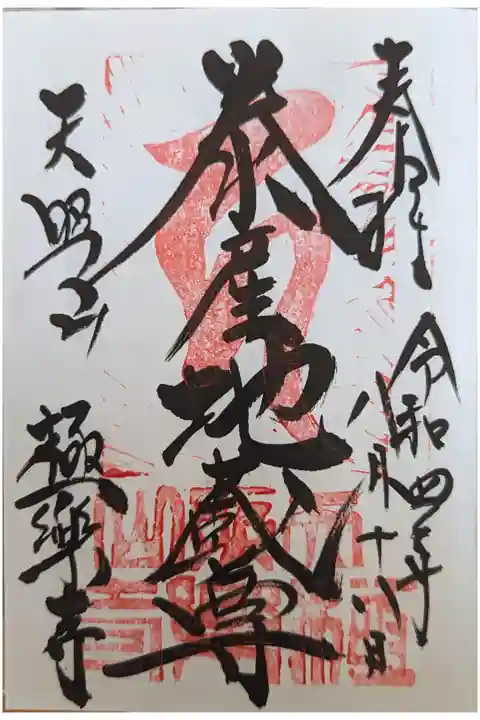 奉拝
令和四年
八月十八日
泰産地蔵尊
天照山
極楽寺